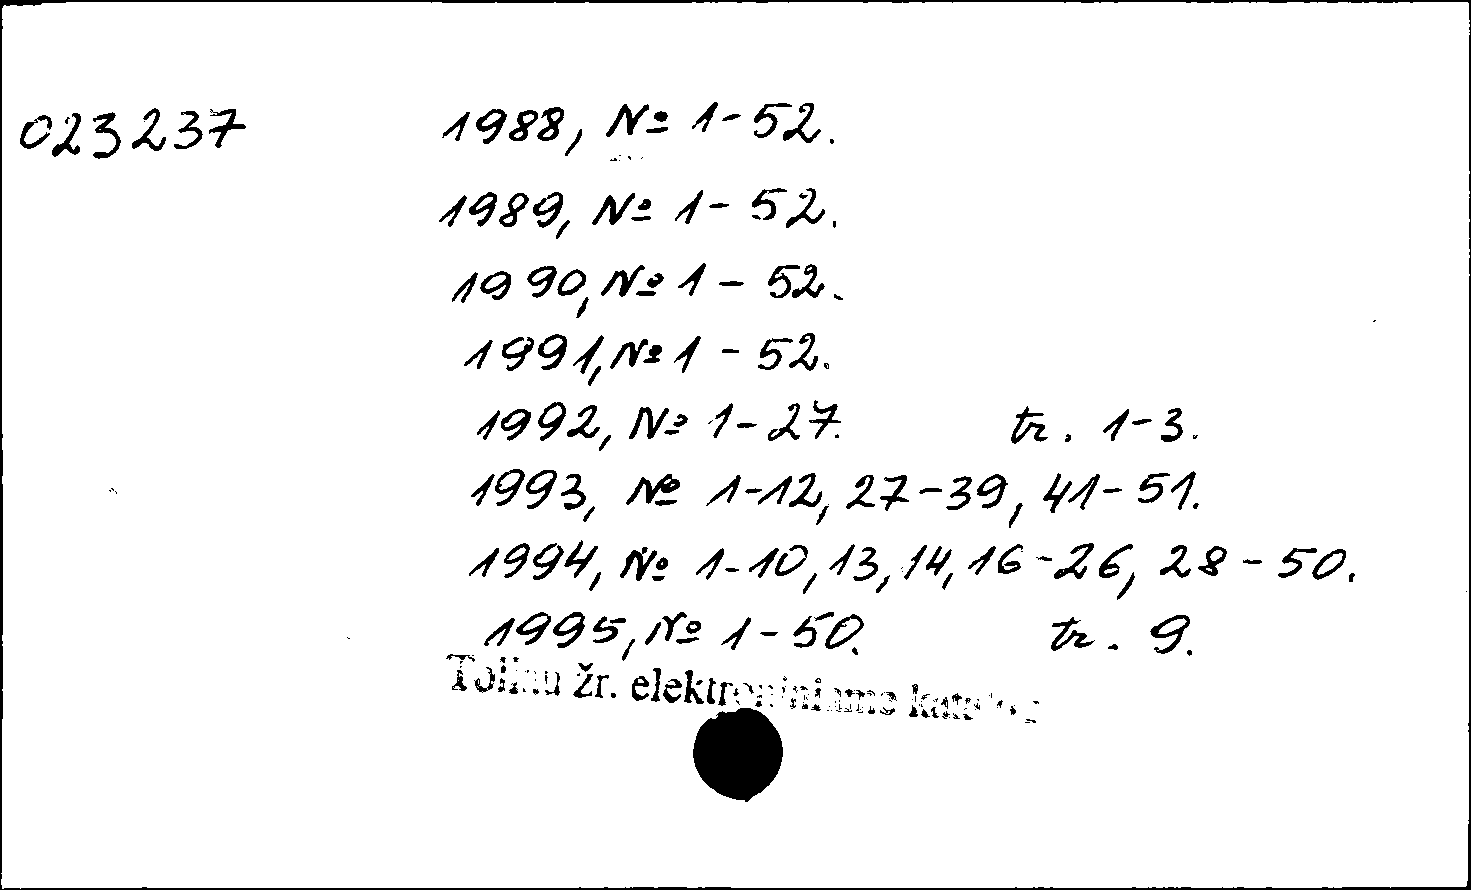 023237 1988, № 1-52.
1989, № 1-52.
1990, № 1-52.
1991, № 1-52.
1992, № 1-27. tr. 1-3.
1993, № 1-12, 27-39, 41-51.
1994, № 1-10, 13, 14, 16-26, 28-50.
1995, № 1-50. tr. 9.
Toliau žr. elektroniniame